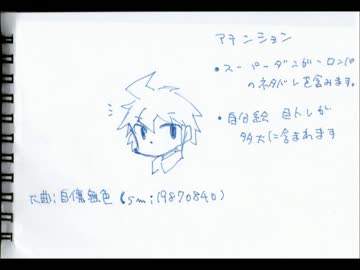 アテンション
・スーパーダンガンロンパ
のネタバレを含みます。
・自分絵 自トレが
多大に含まれます
元曲:自傷無色(sm19870840)